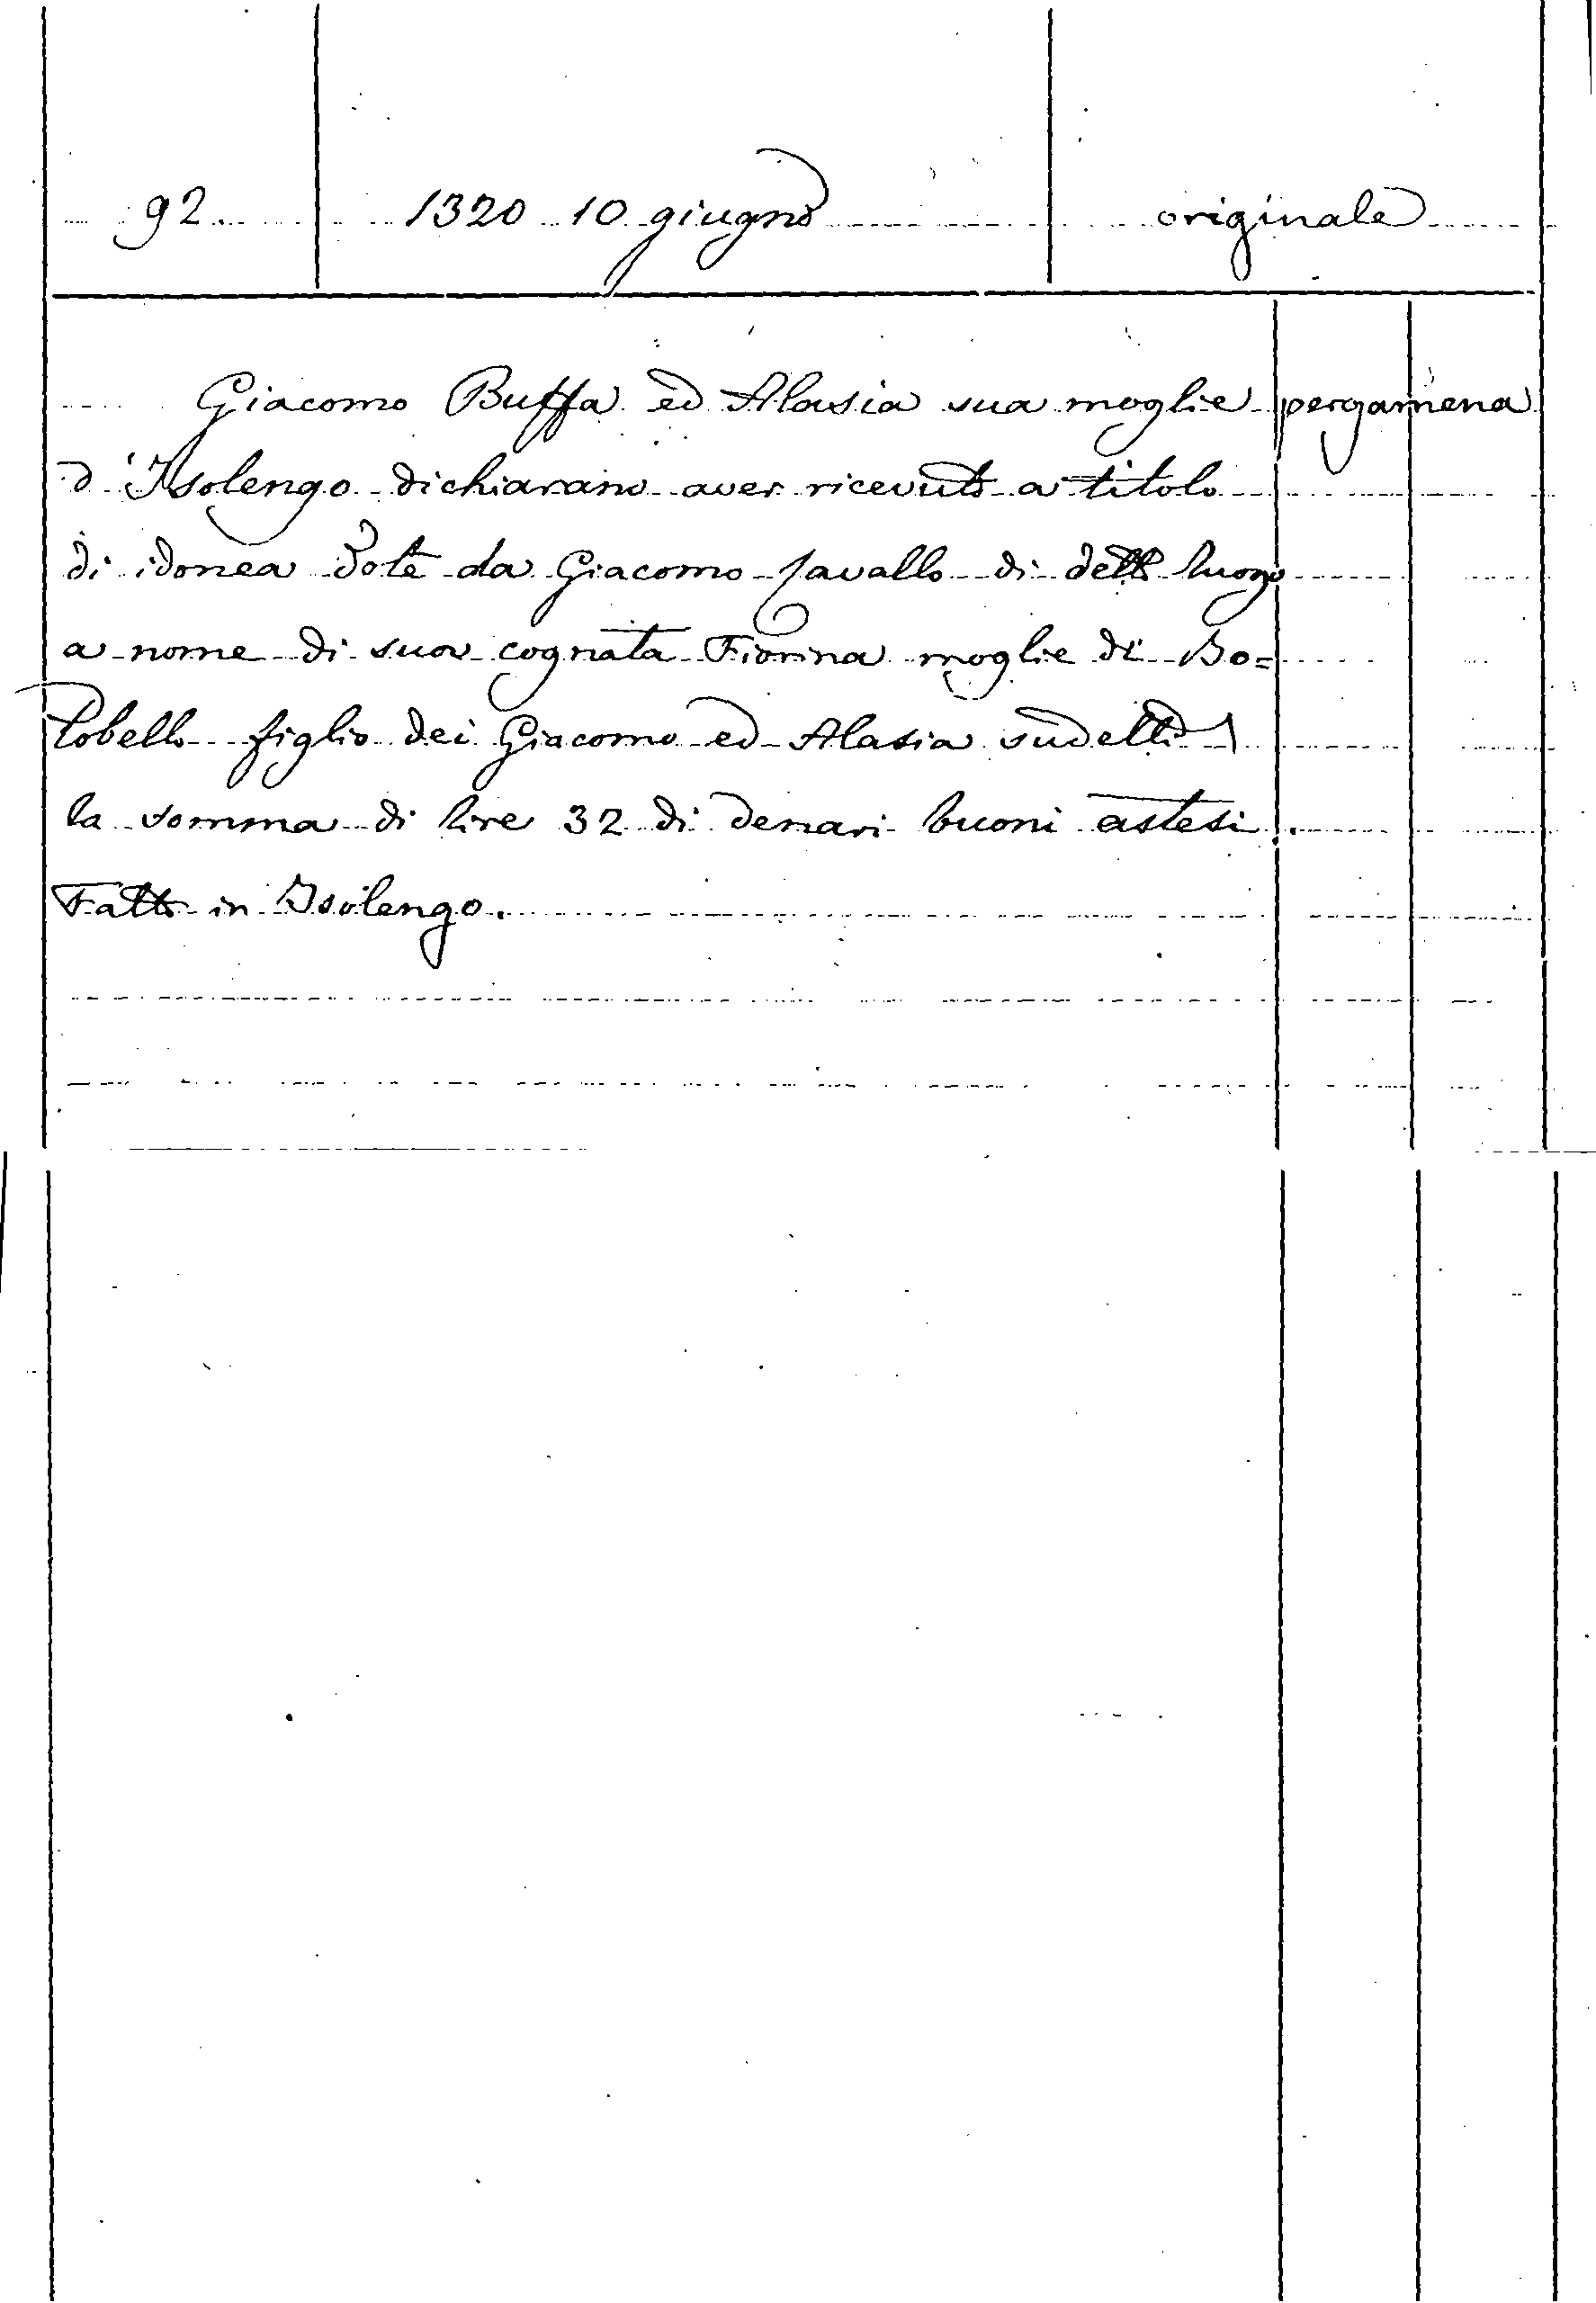 92. 1320 10 giugno originale
Giacomo Buffa ed Alasia sua moglie pergamena
d'Isolengo dichiarano aver ricevuto a titolo
di idonea dote da Giacomo Cavallo di detto luogo
a nome di sua cognata Fiorina moglie di Bo=
tobello figlio dei Giacomo ed Alasia sudetti
la somma di lire 32 di denari buoni astesi.
Fatto in Isolengo.